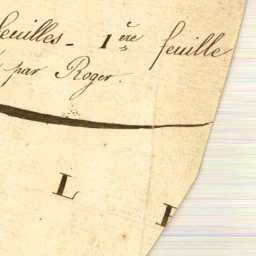 feuilles - 1ère feuille
par Roger.
L